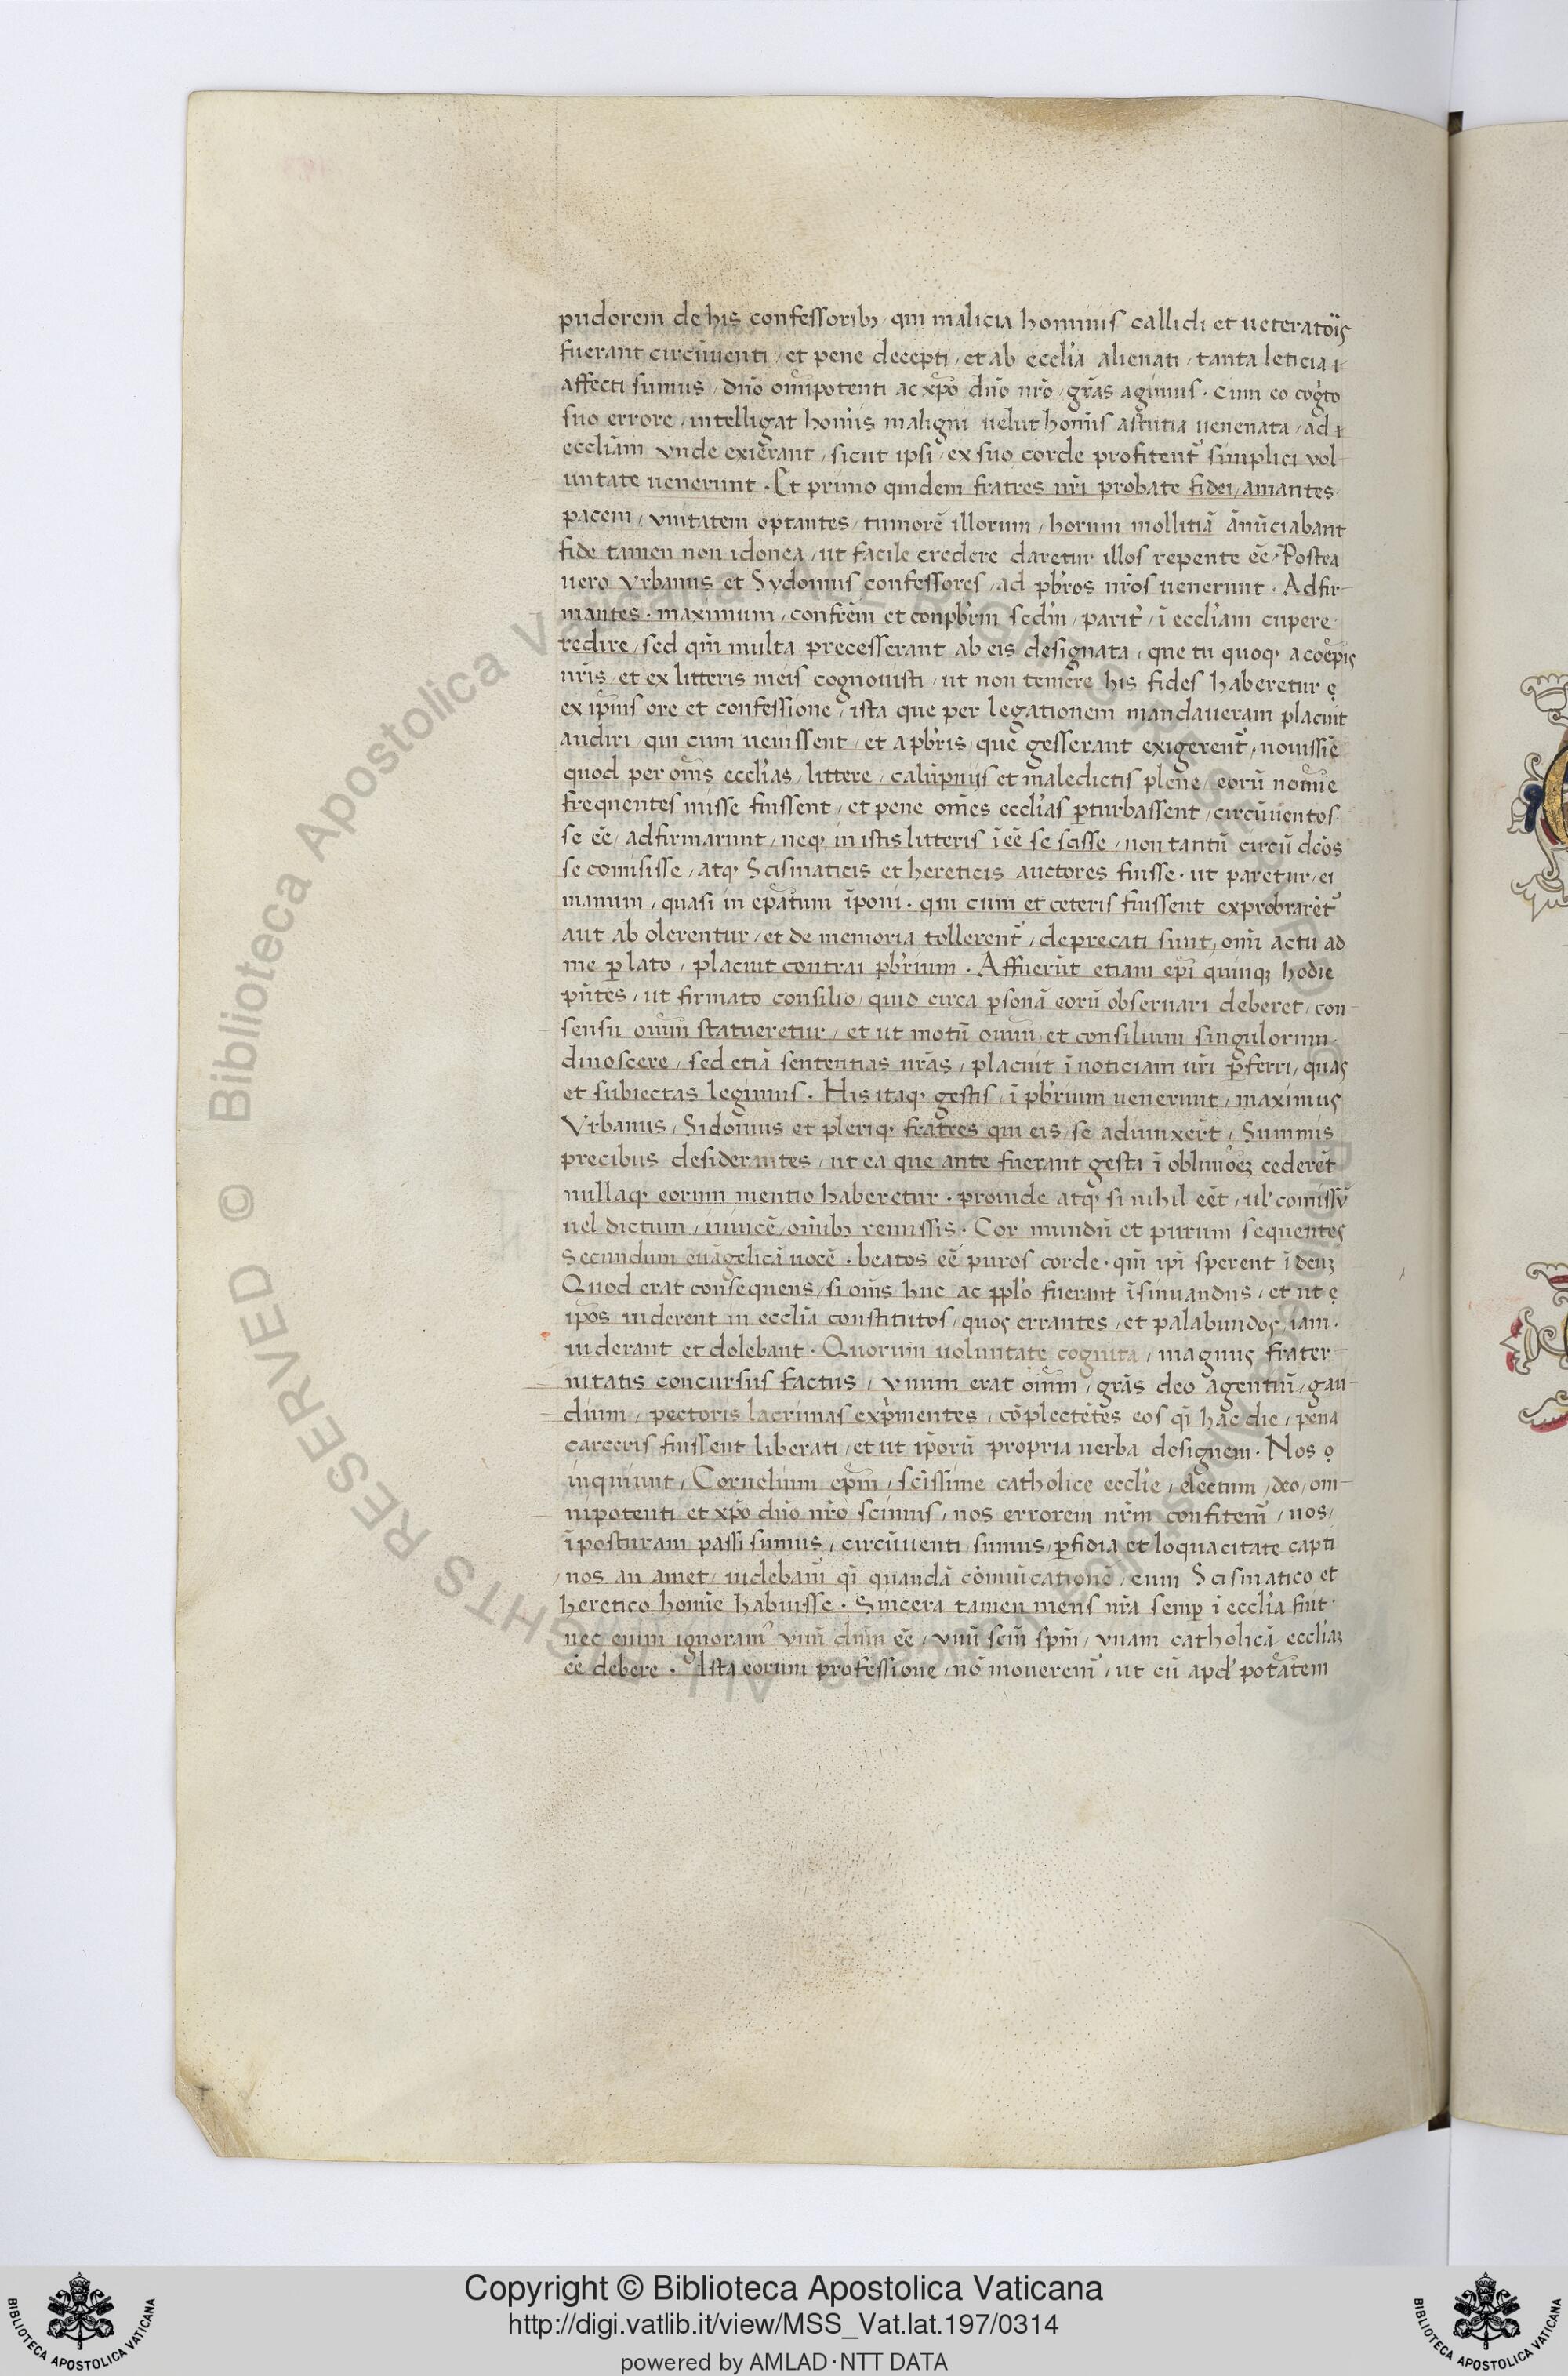 pudorem de his confessoribꝫ / qui malicia hominis callidi et ueteratoïs
fuerant circūuenti / et pene decepti / et ab ecclia alienati / tanta leticia
affecti sumus / dño omīpotenti ac xp̄o dño nr̄o / gr̄as agimus . Cum eo cogͥto
suo errore / intelligat homīs maligni uelut homīs astutia uenenata / ad
eccliam vnde exierant / sicut ipsi / ex suo corde profitent̄ simplici vol
untate uenerunt . Et primo quidem fratres nr̄i probate fidei / amantes
pacem / vnitatem optantes / tumorē illorum / horum mollitiā ānūciabant
fide tamen non idonea / ut facile credere daretur illos repente eē / Postea
uero Vrbanus et Sydonius confessores / ad pb̄ros nr̄os uenerunt . Adfir-
mantes . maximum / confrēm et conpb̄rm secū / parit̄ / ī eccliam cupere
redire / sed qm̄ multa precesserant ab eis designata / que tu quoqꝫ a coēpis
nr̄is / et ex litteris meis cognouisti / ut non temere his fides haberetur
ex ip̄ius ore et confessione / ista que per legationem mandaueram placuit
audiri / qui cum uenissent / et a pb̄ris / que gesserant exigerent̄ / nouissīe
quod per om̄s ecclias / littere / calūpnijs et maledictis plene / eorū nomīe
frequentes misse fuissent / et pene om̄es ecclias ꝑturbassent / circūuentos
se eē / adfirmarunt / neqꝫ in istis litteris ī eē se scisse / non tantū circū dc̄os
se comisisse / atqꝫ Scismaticis et hereticis auctores fuisse . ut paretur / ei
manum / quasi in ep̄atum īponi . qui cum et ceteris fuissent exprobrarēt̄
aut ab olerentur / et de memoria tollerent̄ / deprecati sunt / om̄i actu ad
me ꝑlato / placuit contrai pb̄rium . Affuerūt etiam ep̄i quinqꝫ hodie
pn̄tes / ut firmato consilio / quid circa ꝑsonā eorū obseruari deberet / con-
sensu om̄m statueretur / et ut motū om̄m et consilium singulorum
dinoscere / sed etiā sententias nr̄as / placuit ī noticiam ur̄i ꝑferri / quas
et subiectas legimus . His itaqꝫ gestis / ī pb̄rium uenerunt / maximus
Vrbanus / Sidonius et pleriqꝫ fratres qui eis / se adiunxer̄t / Summis
precibus desiderantes / ut ea que ante fuerant gesta ī obliuiōeꝫ cederēt
nullaqꝫ eorum mentio haberetur . proinde atqꝫ si nihil eēt / ul̓ comissū
uel dictum / inuicē / om̄ibꝫ remissis . Cor mundū et purum sequentes
Secundum euāgelicā uocē . beatos eē puros corde . qm̄ ip̄i sperent ī deuꝫ
Quod erat consequens / si om̄is huc ac pp̄lo fuerant īsinuandus / et ut
ip̄os uiderent in ecclia constitutos / quos errantes / et palabundos / iam
uiderant et dolebant . Quorum uoluntate cognita / magnus frater-
nitatis concursus factus / vnum erat om̄m / gr̄as deo agentiū / gau-
dium / pectoris lacrimas exp̄mentes / cōplectētes eos qͥ hac die / pena
carceris fuissent liberati / et ut ip̄orū propria uerba designem . Nos
inquiunt / Cornelium ep̄m / sc̄issime catholice ecclie / electum / deo / om-
nipotenti et xp̄o dño nr̄o scimus / nos errorem nr̄m confitem̄ / nos /
īposturam passi sumus / circūuenti sumus / ꝑfidia et loquacitate capti
/ nos an amet / uidebam̄ qͥ quandā cōmūicationē / cum Scismatico et
heretico homīe habuisse . Sincera tamen mens nr̄a semꝑ ī ecclia fuit
nec enim ignoram̄ vnū dum̄ eē / vnū sc̄m sp̄m / vnam catholicā eccliaꝫ
eē debere . Ista eorum professione / nō mouerem̄ / ut cū apd̓ potātem
Copyright © Biblioteca Apostolica Vaticana
http://digi.vatlib.it/view/MSS_Vat.lat.197/0314
powered by AMLAD·NTT DATA
BIBLIOTECA APOSTOLICA VATICANA
BIBLIOTECA APOSTOLICA VATICANA